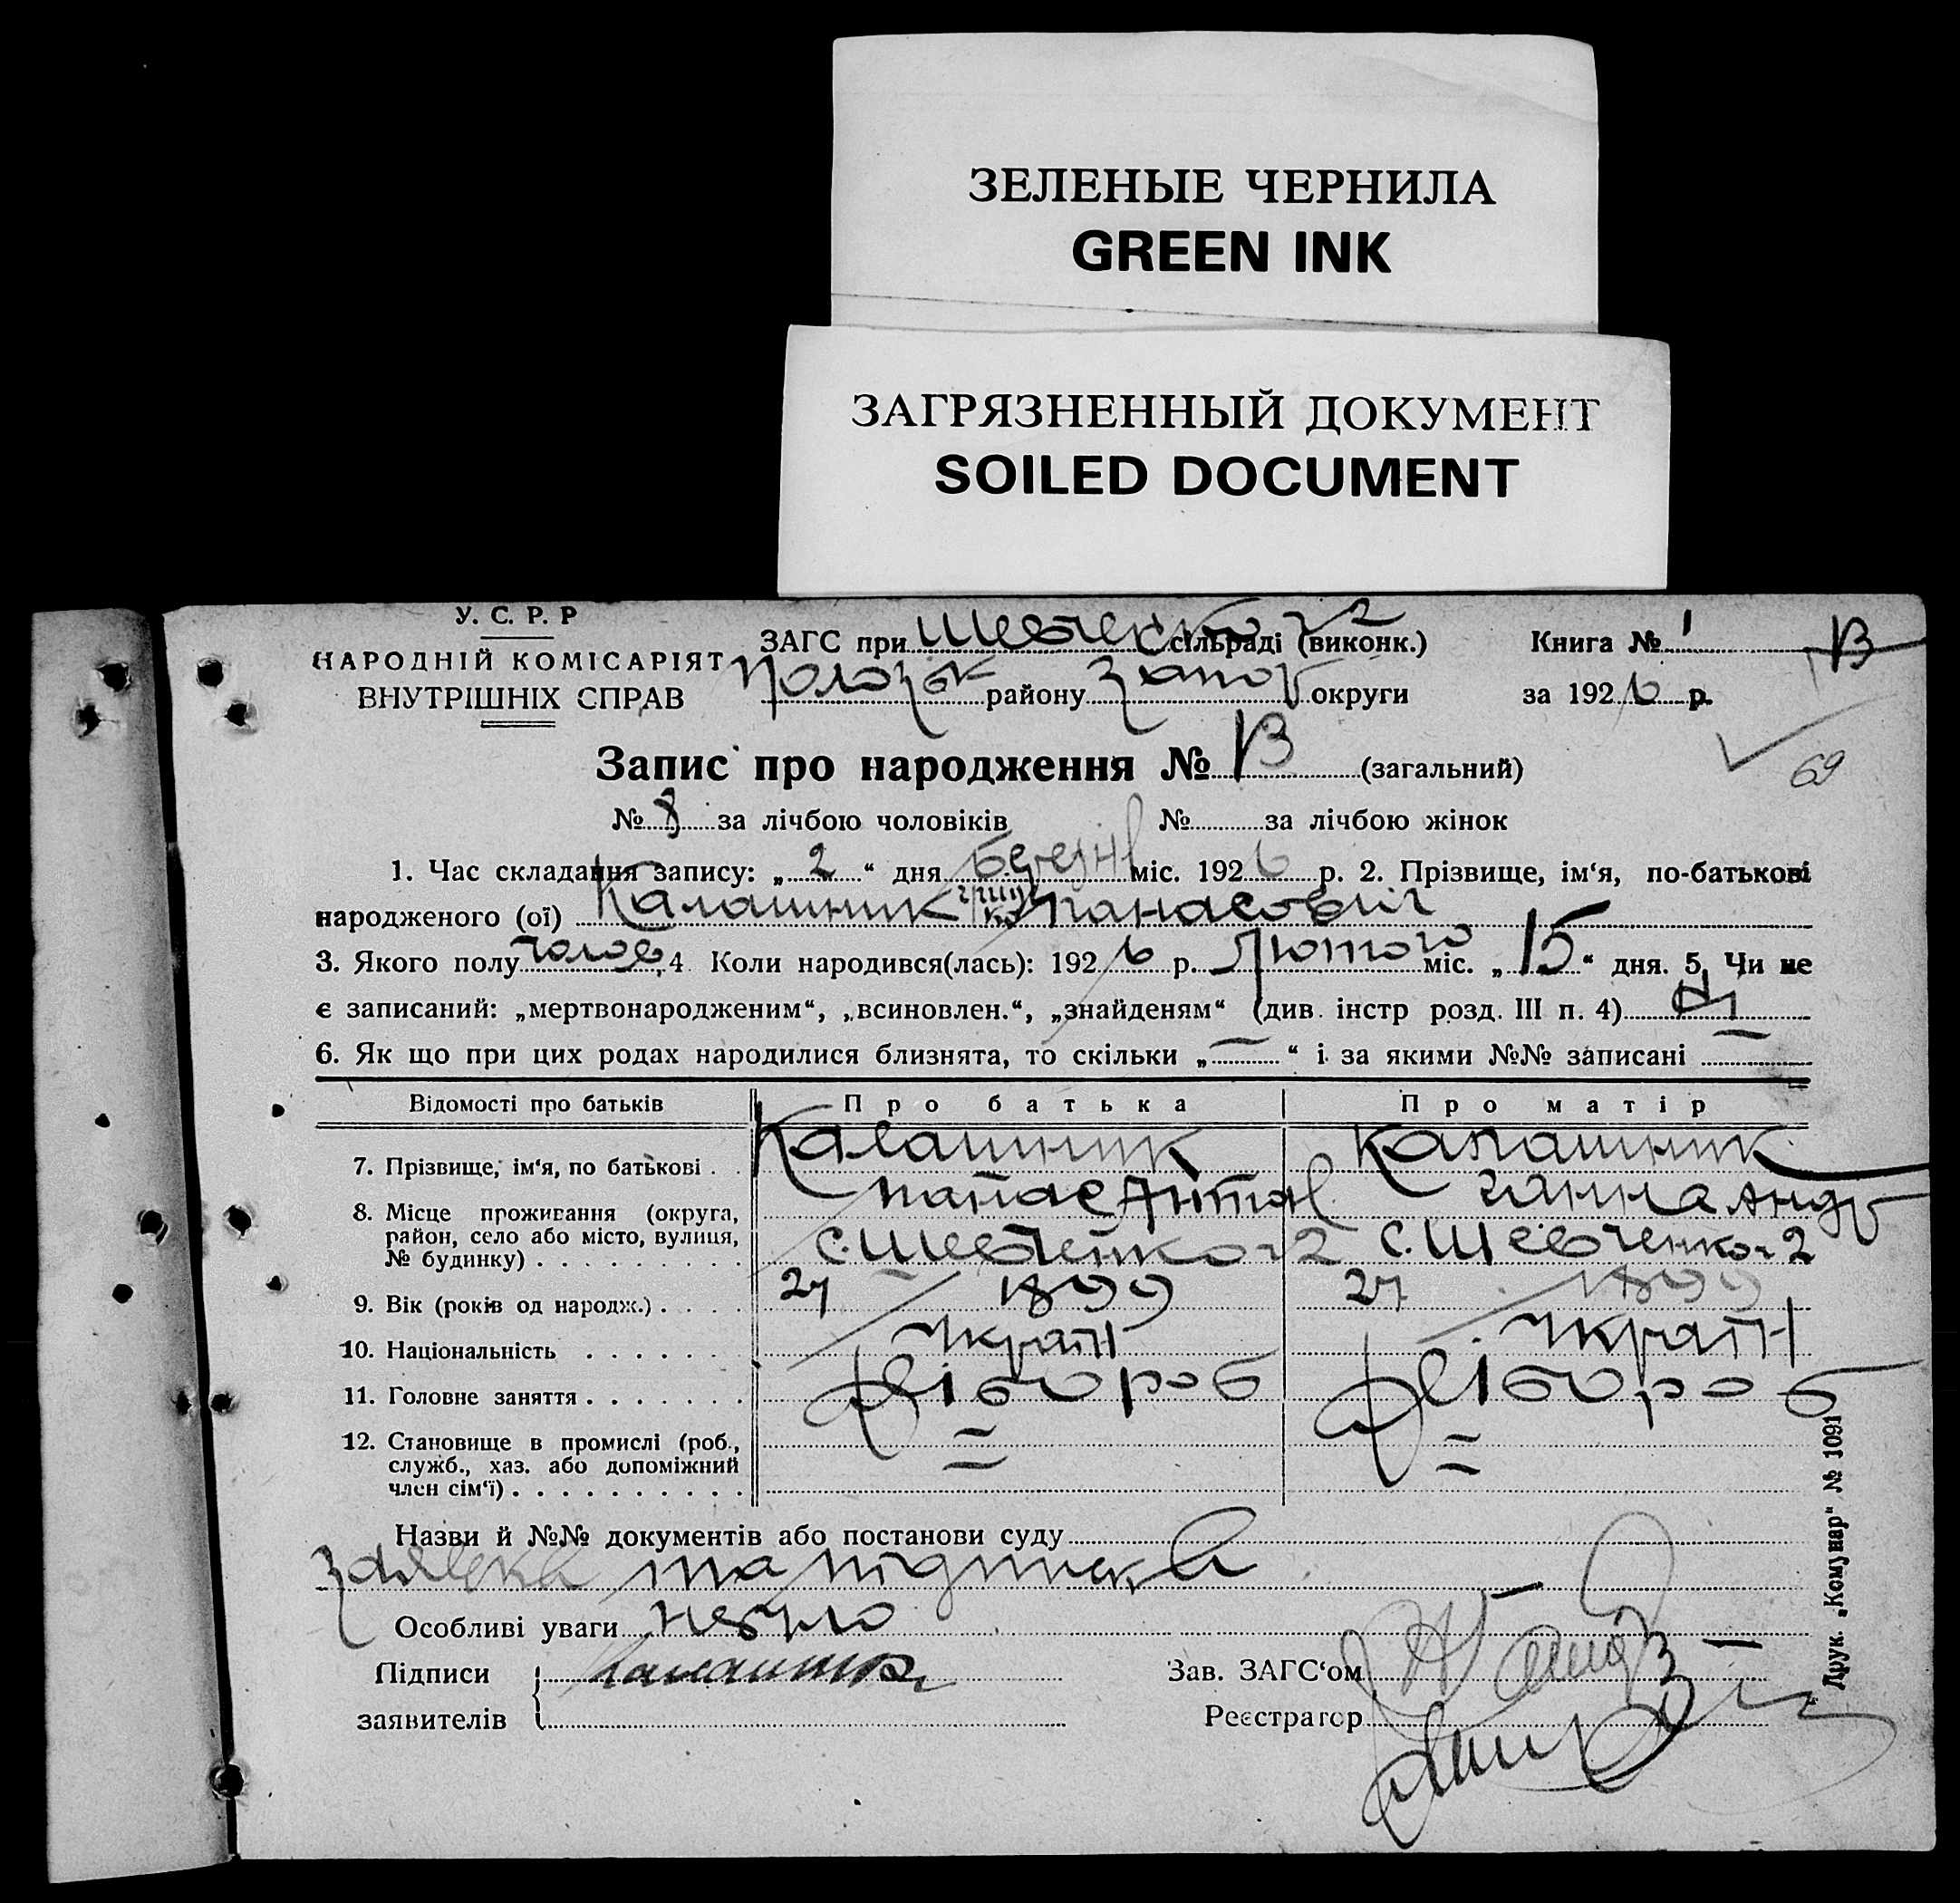 ЗЕЛЕНЫЕ ЧЕРНИЛА
GREEN INK
ЗАГРЯЗНЕННЫЙ ДОКУМЕНТ
SOILED DOCUMENT
У. С. Р. Р
НАРОДНІЙ КОМІСАРІЯТ
ВНУТРІШНІХ СПРАВ
ЗАГС при Шевченко 2 сільраді (виконк.)
Пологівск району Запор округи
Книга № 1
за 1926 р.
13
Запис про народження № 13 (загальний)
69
№ 8 за лічбою чоловіків № за лічбою жінок
1. Час складання запису: „2“ дня Березня міс. 1926 р. 2. Прізвище, ім‘я, по-батькові
народженого (ої) Калашник Панасович
3. Якого полу чолов, 4 Коли народився(лась): 1926 р. Лютого міс. „15“ дня. 5. Чи не
є записаний: „мертвонародженим“, „всиновлен.“, „знайденям“ (див. інстр розд. III п. 4) ні
6. Як що при цих родах народилися близнята, то скільки „—“ і за якими №№ записані —
Відомості про батьків Про батька Про матір
7. Прізвище, ім‘я, по батькові . . Калашник Калашник
Панас Антон Ганна Андр
8. Місце проживання (округа, район, село або місто, вулиця, № будинку) . . . . . . . . . с. Шевченко 2 с. Шевченко 2
9. Вік (років од народж.) . . . . 27 1899 27 1899
10. Національність . . . . . . Україн Україн
11. Головне заняття . . . . . . . хлібороб хлібороб
12. Становище в промислі (роб., служб., хаз. або допоміжний член сім‘ї) . . . . . . . . . . = =
Назви й №№ документів або постанови суду
Заявка та підписка
Особливі уваги небуло
Підписи заявителів Калашник
Зав. ЗАГС‘ом
Реєстратор
Друк. „Комунар“ № 1091